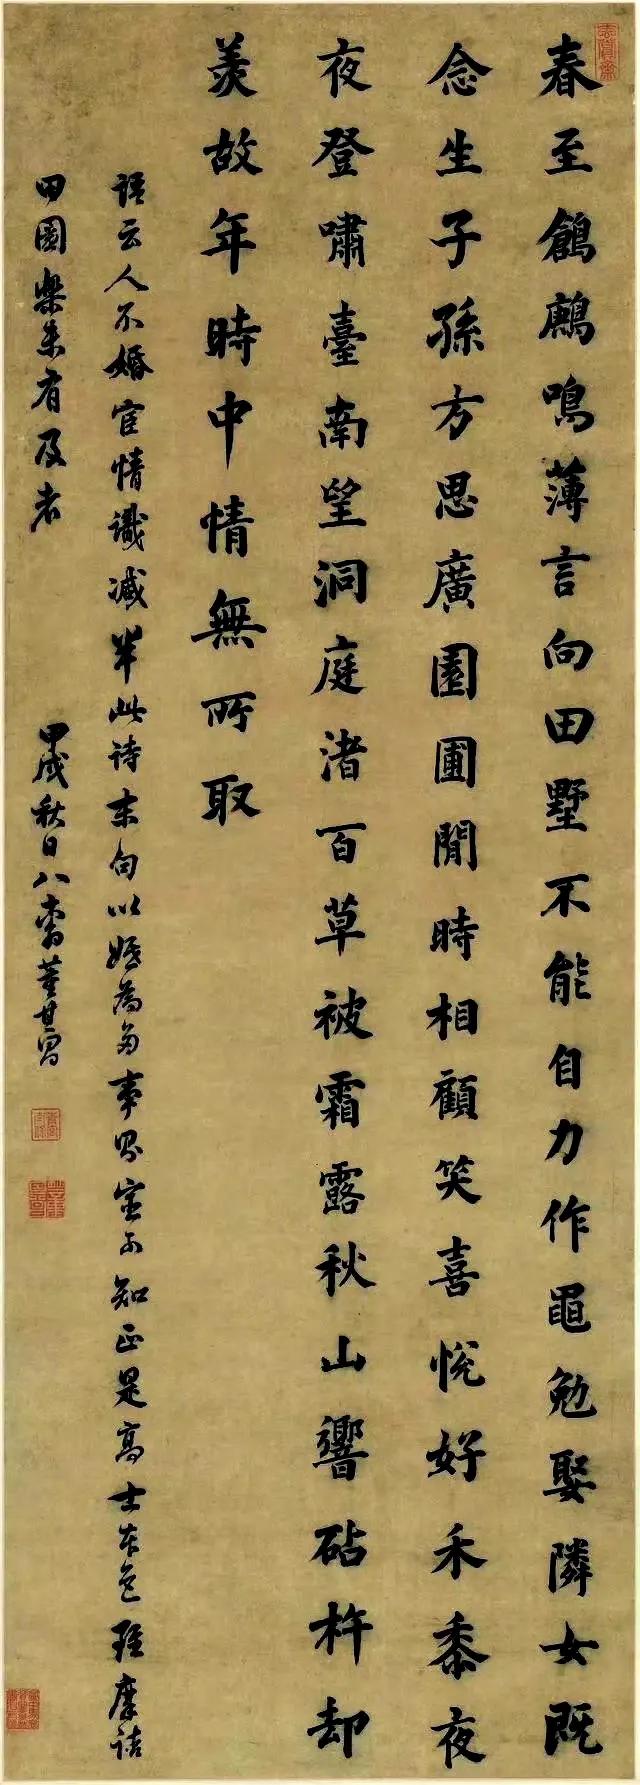 春至鶬鶊鳴薄言向田墅不能自力作黽勉娶隣女既
念生子孫方思廣園圃閒時相顧笑喜悅好禾黍夜
夜登嘯臺南望洞庭渚百草被霜露秋山響砧杵却
羨故年時中情無所取
語云人不婚宦情識減半此詩末句以婚為多事知正是高士本色雖摩詰
田園樂未有及者
甲戌秋日八袠董其昌